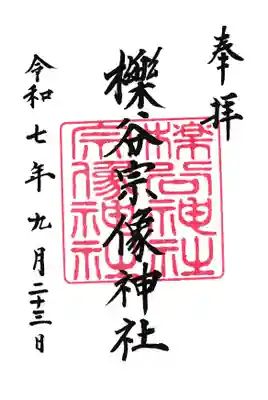 奉拝
櫟谷宗像神社
櫟谷神社
宗像神社
令和七年九月二十三日